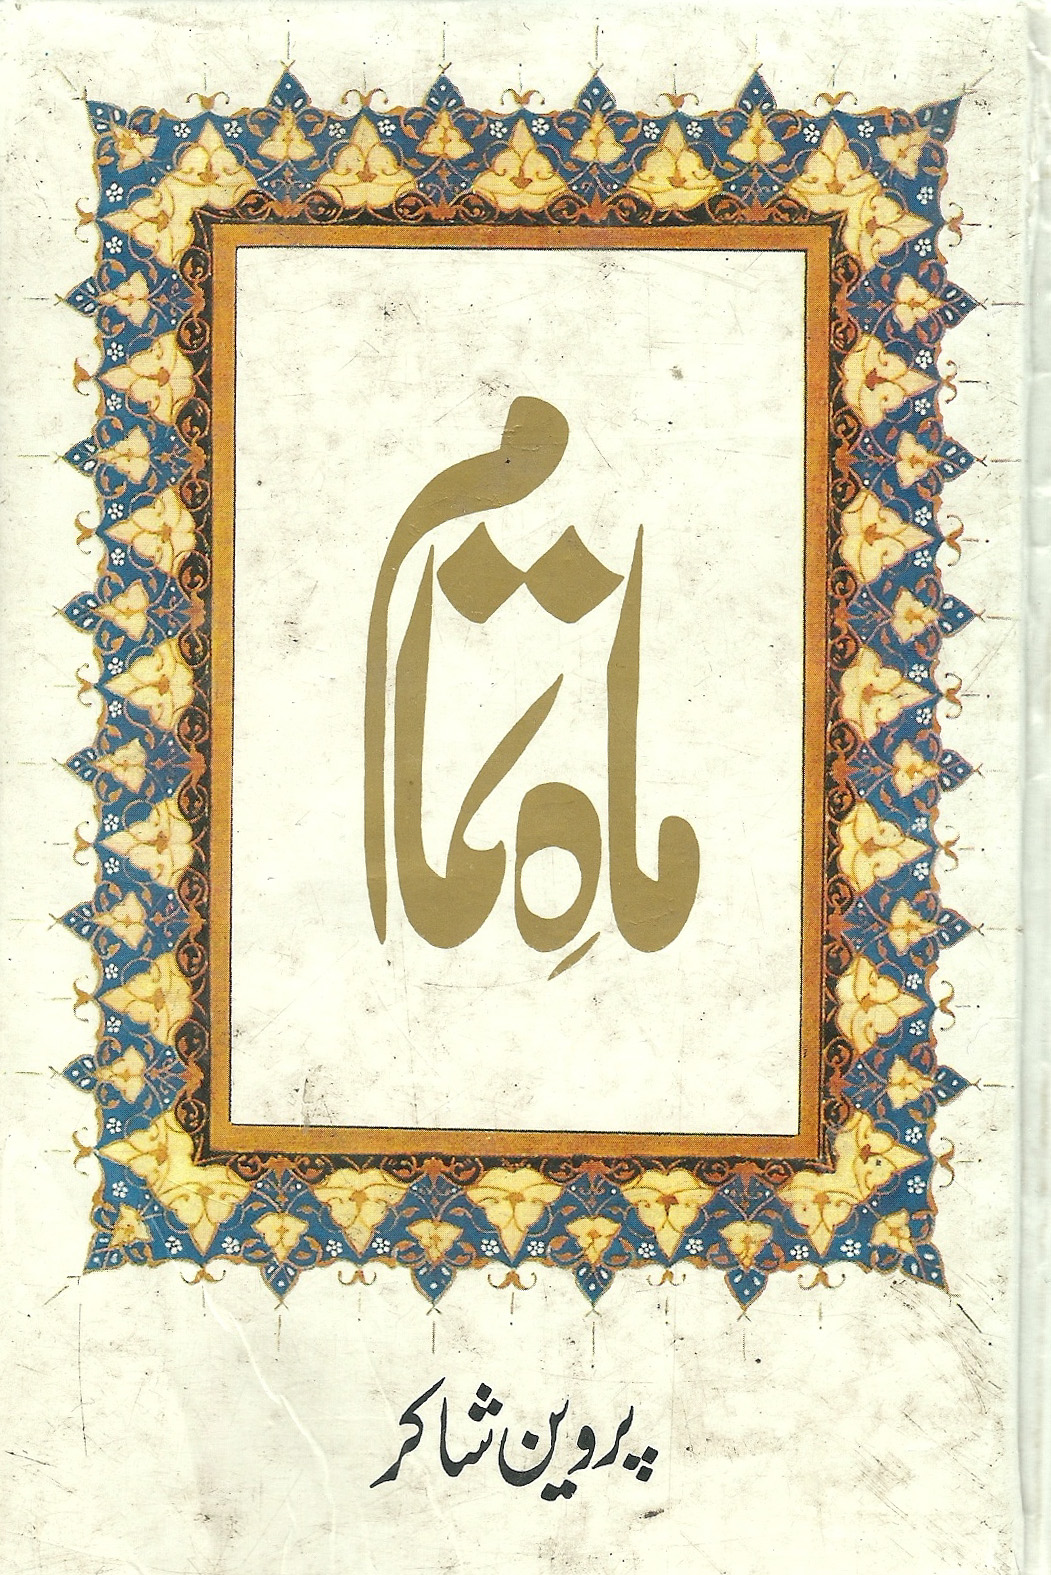 ماہِ تمام
پروین شاکر